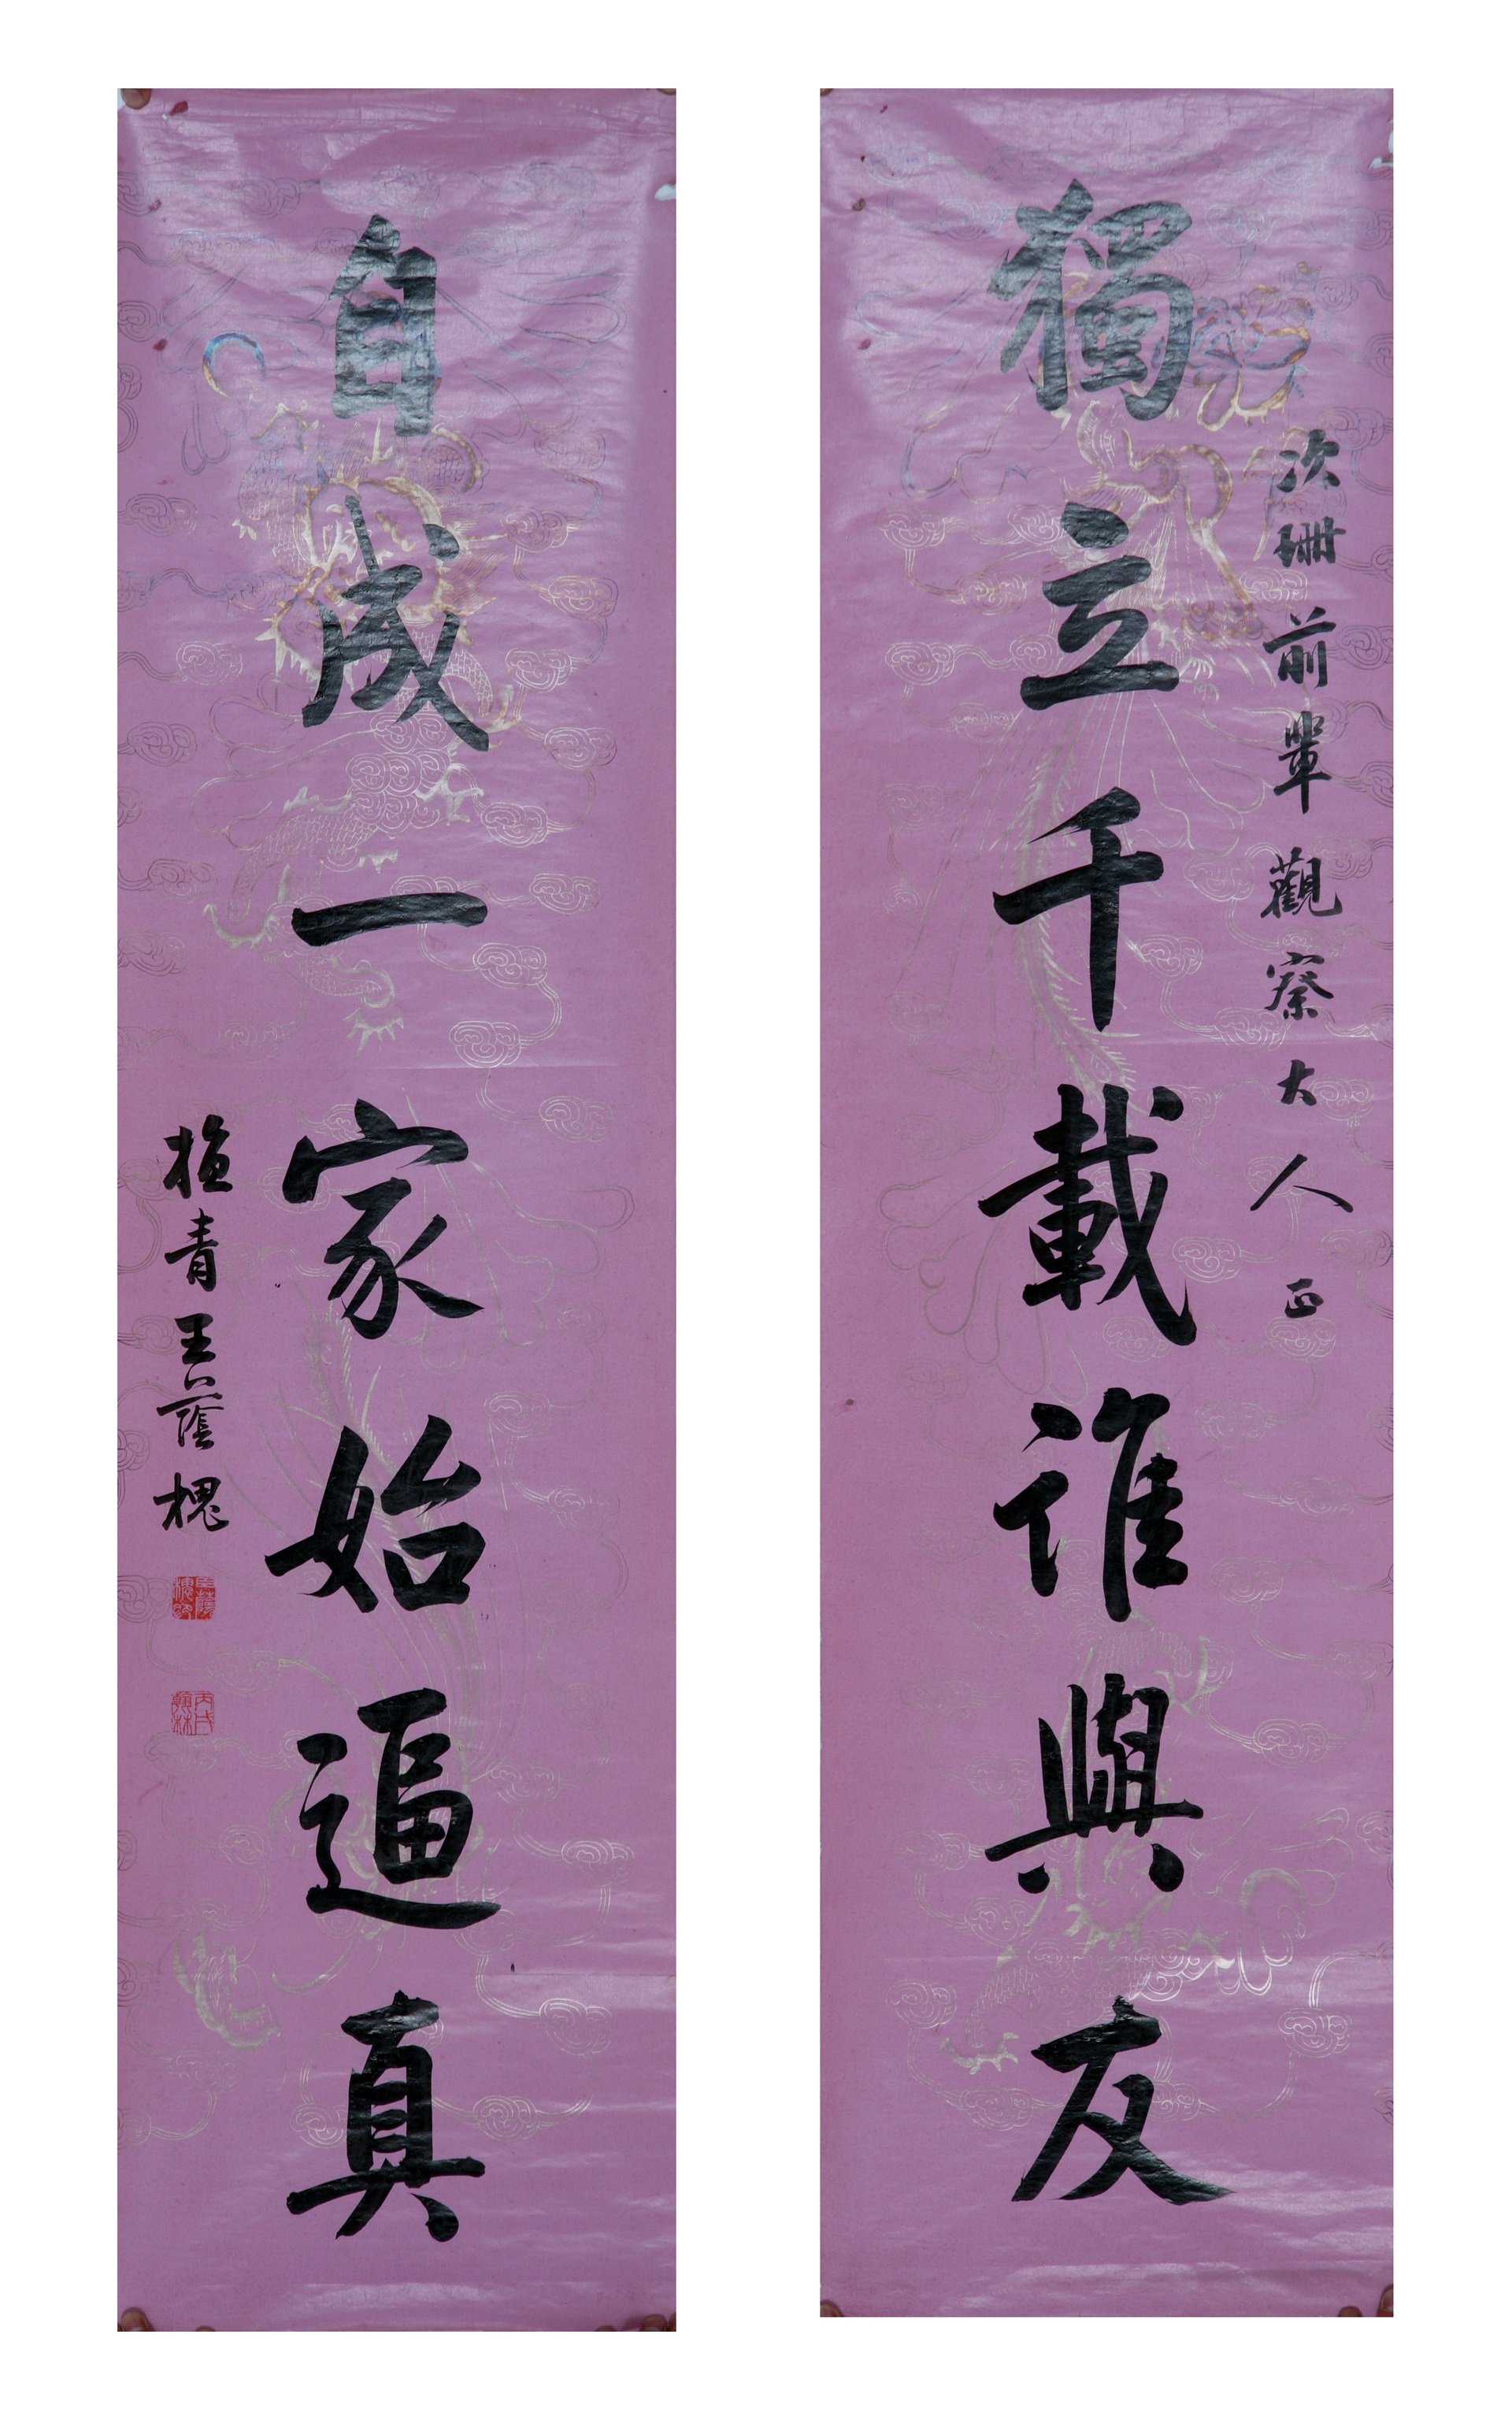 次珊前輩觀察大人正
獨立千載誰與友
自成一家始逼真
植青王蔭槐
丙戌翰林